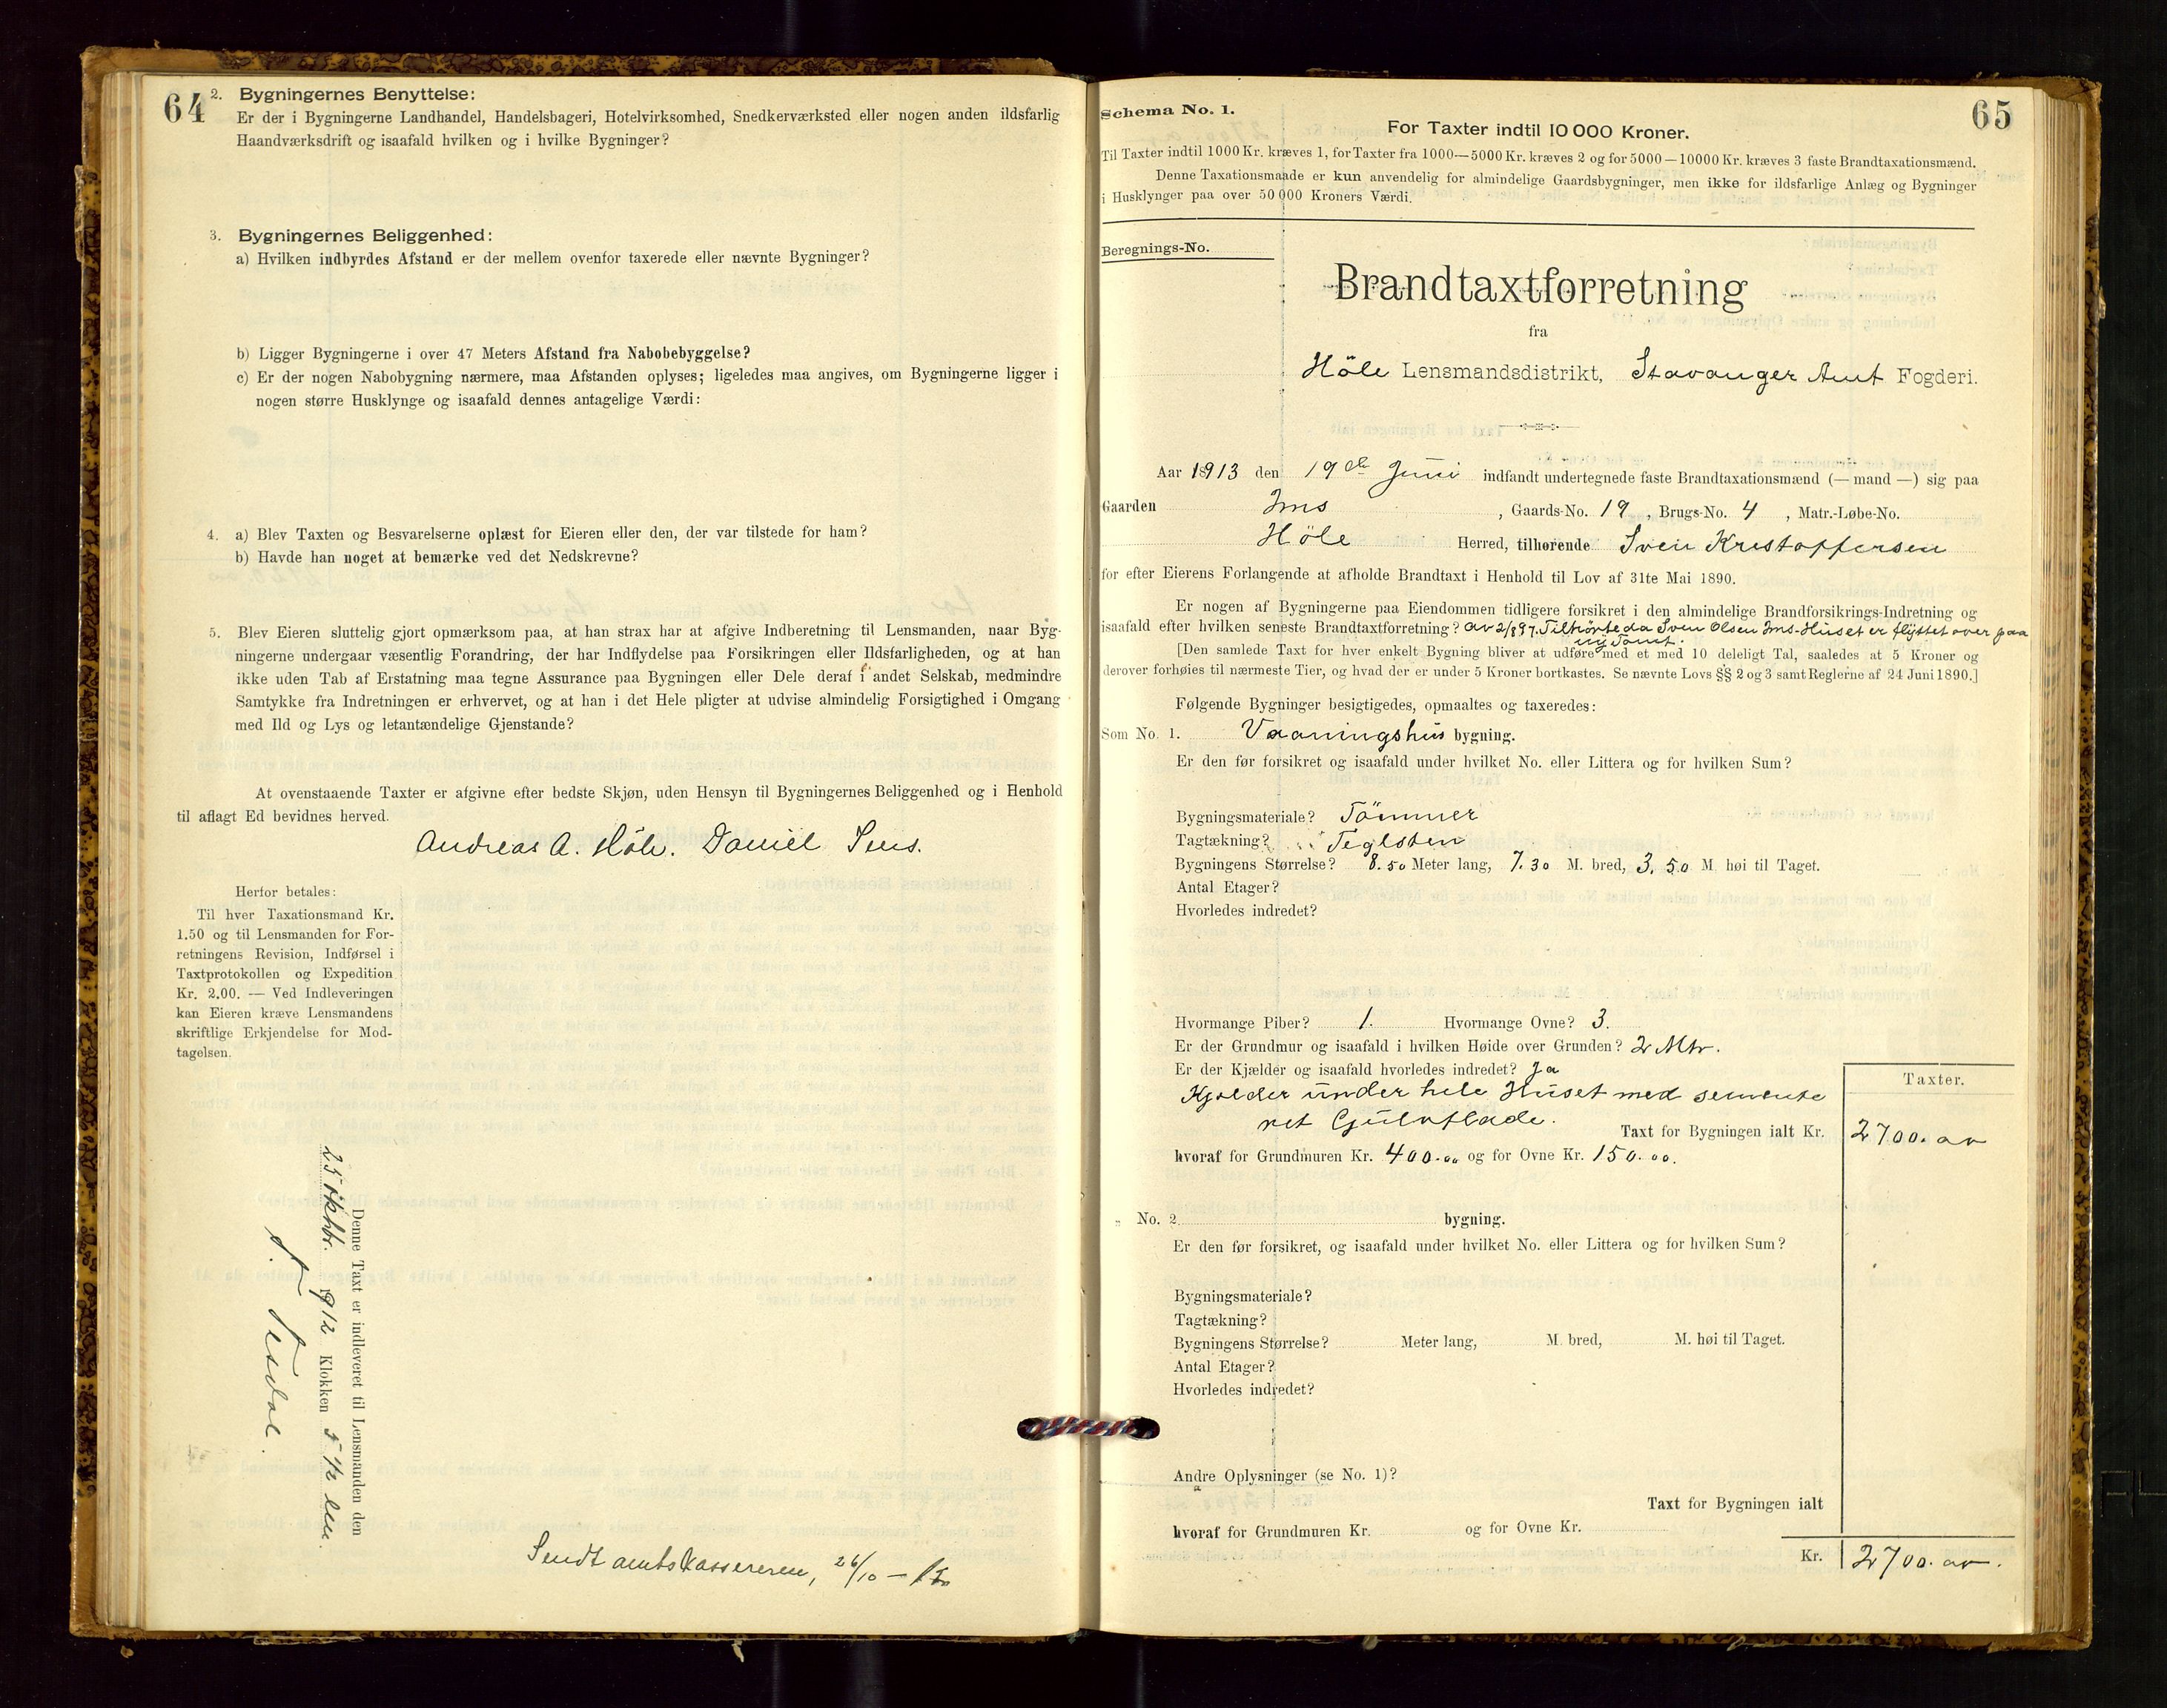 64
2. Bygningernes Benyttelse:
Er der i Bygningerne Landhandel, Handelsbageri, Hotelvirksomhed, Snedkerværksted eller nogen anden ildsfarlig
Haandværksdrift og isaafald hvilken og i hvilke Bygninger?
3. Bygningernes Beliggenhed:
a) Hvilken indbyrdes Afstand er der mellem ovenfor taxerede eller nævnte Bygninger?
b) Ligger Bygningerne i over 47 Meters Afstand fra Nabobebyggelse?
c) Er der nogen Nabobygning nærmere, maa Afstanden oplyses; ligeledes maa angives, om Bygningerne ligger i
nogen større Husklynge og isaafald dennes antagelige Værdi:
4. a) Blev Taxten og Besvarelserne oplæst for Eieren eller den, der var tilstede for ham?
b) Havde han noget at bemærke ved det Nedskrevne?
5. Blev Eieren sluttelig gjort opmærksom paa, at han strax har at afgive Indberetning til Lensmanden, naar Byg-
ningerne undergaar væsentlig Forandring, der har Indflydelse paa Forsikringen eller Ildsfarligheden, og at han
ikke uden Tab af Erstatning maa tegne Assurance paa Bygningen eller Dele deraf i andet Selskab, medmindre
Samtykke fra Indretningen er erhvervet, og at han i det Hele pligter at udvise almindelig Forsigtighed i Omgang
med Ild og Lys og letantændelige Gjenstande?
At ovenstaaende Taxter er afgivne efter bedste Skjøn, uden Hensyn til Bygningernes Beliggenhed og i Henhold
til aflagt Ed bevidnes herved.
Andreas A. Höle. Daniel Ims.
Herfor betales:
Til hver Taxationsmand Kr.
1.50 og til Lensmanden for For-
retningens Revision, Indførsel i
Taxtprotokollen og Expedition
Kr. 2.00. — Ved Indleveringen
kan Eieren kræve Lensmandens
skriftlige Erkjendelse for Mod-
tagelsen.
Denne Taxt er indleveret til Lensmanden den
25 oktbr. 1912 Klokken 5 1/2 em.
Sendt amtskassereren, 26/10 —
65
Schema No. 1.
For Taxter indtil 10 000 Kroner.
Til Taxter indtil 1000 Kr. kræves 1, for Taxter fra 1000—5000 Kr. kræves 2 og for 5000—10000 Kr. kræves 3 faste Brandtaxationsmænd.
Denne Taxationsmaade er kun anvendelig for almindelige Gaardsbygninger, men ikke for ildsfarlige Anlæg og Bygninger
i Husklynger paa over 50 000 Kroners Værdi.
Beregnings-No.
Brandtaxtforretning
fra
Höle Lensmandsdistrikt, Stavanger Amt Fogderi.
Aar 1913 den 19de Juni indfandt undertegnede faste Brandtaxationsmænd (— mand —) sig paa
Gaarden Ims, Gaards-No. 19, Brugs-No. 4, Matr.-Løbe-No.
Höle Herred, tilhørende Sven Kristoffersen
for efter Eierens Forlangende at afholde Brandtaxt i Henhold til Lov af 31te Mai 1890.
Er nogen af Bygningerne paa Eiendommen tidligere forsikret i den almindelige Brandforsikrings-Indretning og
isaafald efter hvilken seneste Brandtaxtforretning? av 2/8 97. Tilhörte da Sven Olsen Ims. Huset er flyttet over paa
ny Tomt.
[Den samlede Taxt for hver enkelt Bygning bliver at udføre med et med 10 deleligt Tal, saaledes at 5 Kroner og
derover forhøies til nærmeste Tier, og hvad der er under 5 Kroner bortkastes. Se nævnte Lovs §§ 2 og 3 samt Reglerne af 24 Juni 1890.]
Følgende Bygninger besigtigedes, opmaaltes og taxeredes:
Som No. 1. Vaaningshus bygning.
Er den før forsikret og isaafald under hvilket No. eller Littera og for hvilken Sum?
Bygningsmateriale? Tömmer
Tagtækning? Teglsten
Bygningens Størrelse? 8.50 Meter lang, 7.30 M. bred, 3.50 M. høi til Taget.
Antal Etager?
Hvorledes indredet?
Hvormange Piber? 1. Hvormange Ovne? 3.
Er der Grundmur og isaafald i hvilken Høide over Grunden? 2 Mtr.
Er der Kjælder og isaafald hvorledes indredet? Ja
Kjelder under hele Huset med semente
ret Gulvflade.
Taxter.
Taxt for Bygningen ialt Kr. 2700.00
hvoraf for Grundmuren Kr. 400.00 og for Ovne Kr. 150.00.
" No. 2 bygning.
Er den før forsikret, og isaafald under hvilket No. eller Littera og for hvilken Sum?
Bygningsmateriale?
Tagtækning?
Bygningens Størrelse? Meter lang, M. bred, M. høi til Taget.
Antal Etager?
Hvorledes indredet?
Andre Oplysninger (se No. 1)?
Taxt for Bygningen ialt
hvoraf for Grundmuren Kr. og for Ovne Kr.
Kr. 2700.00.